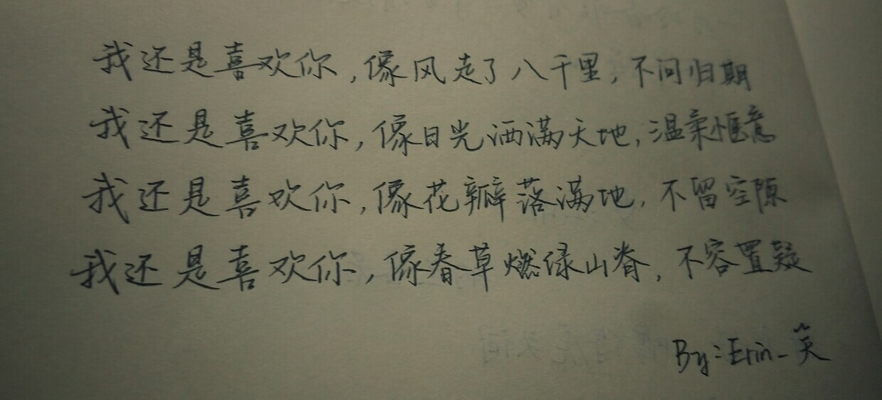 我还是喜欢你,像风走了八千里,不问归期
我还是喜欢你,像日光洒满天地,温柔惬意
我还是喜欢你,像花瓣落满地,不留空隙
我还是喜欢你,像春草燃绿山脊,不容置疑
By:Erin_笑